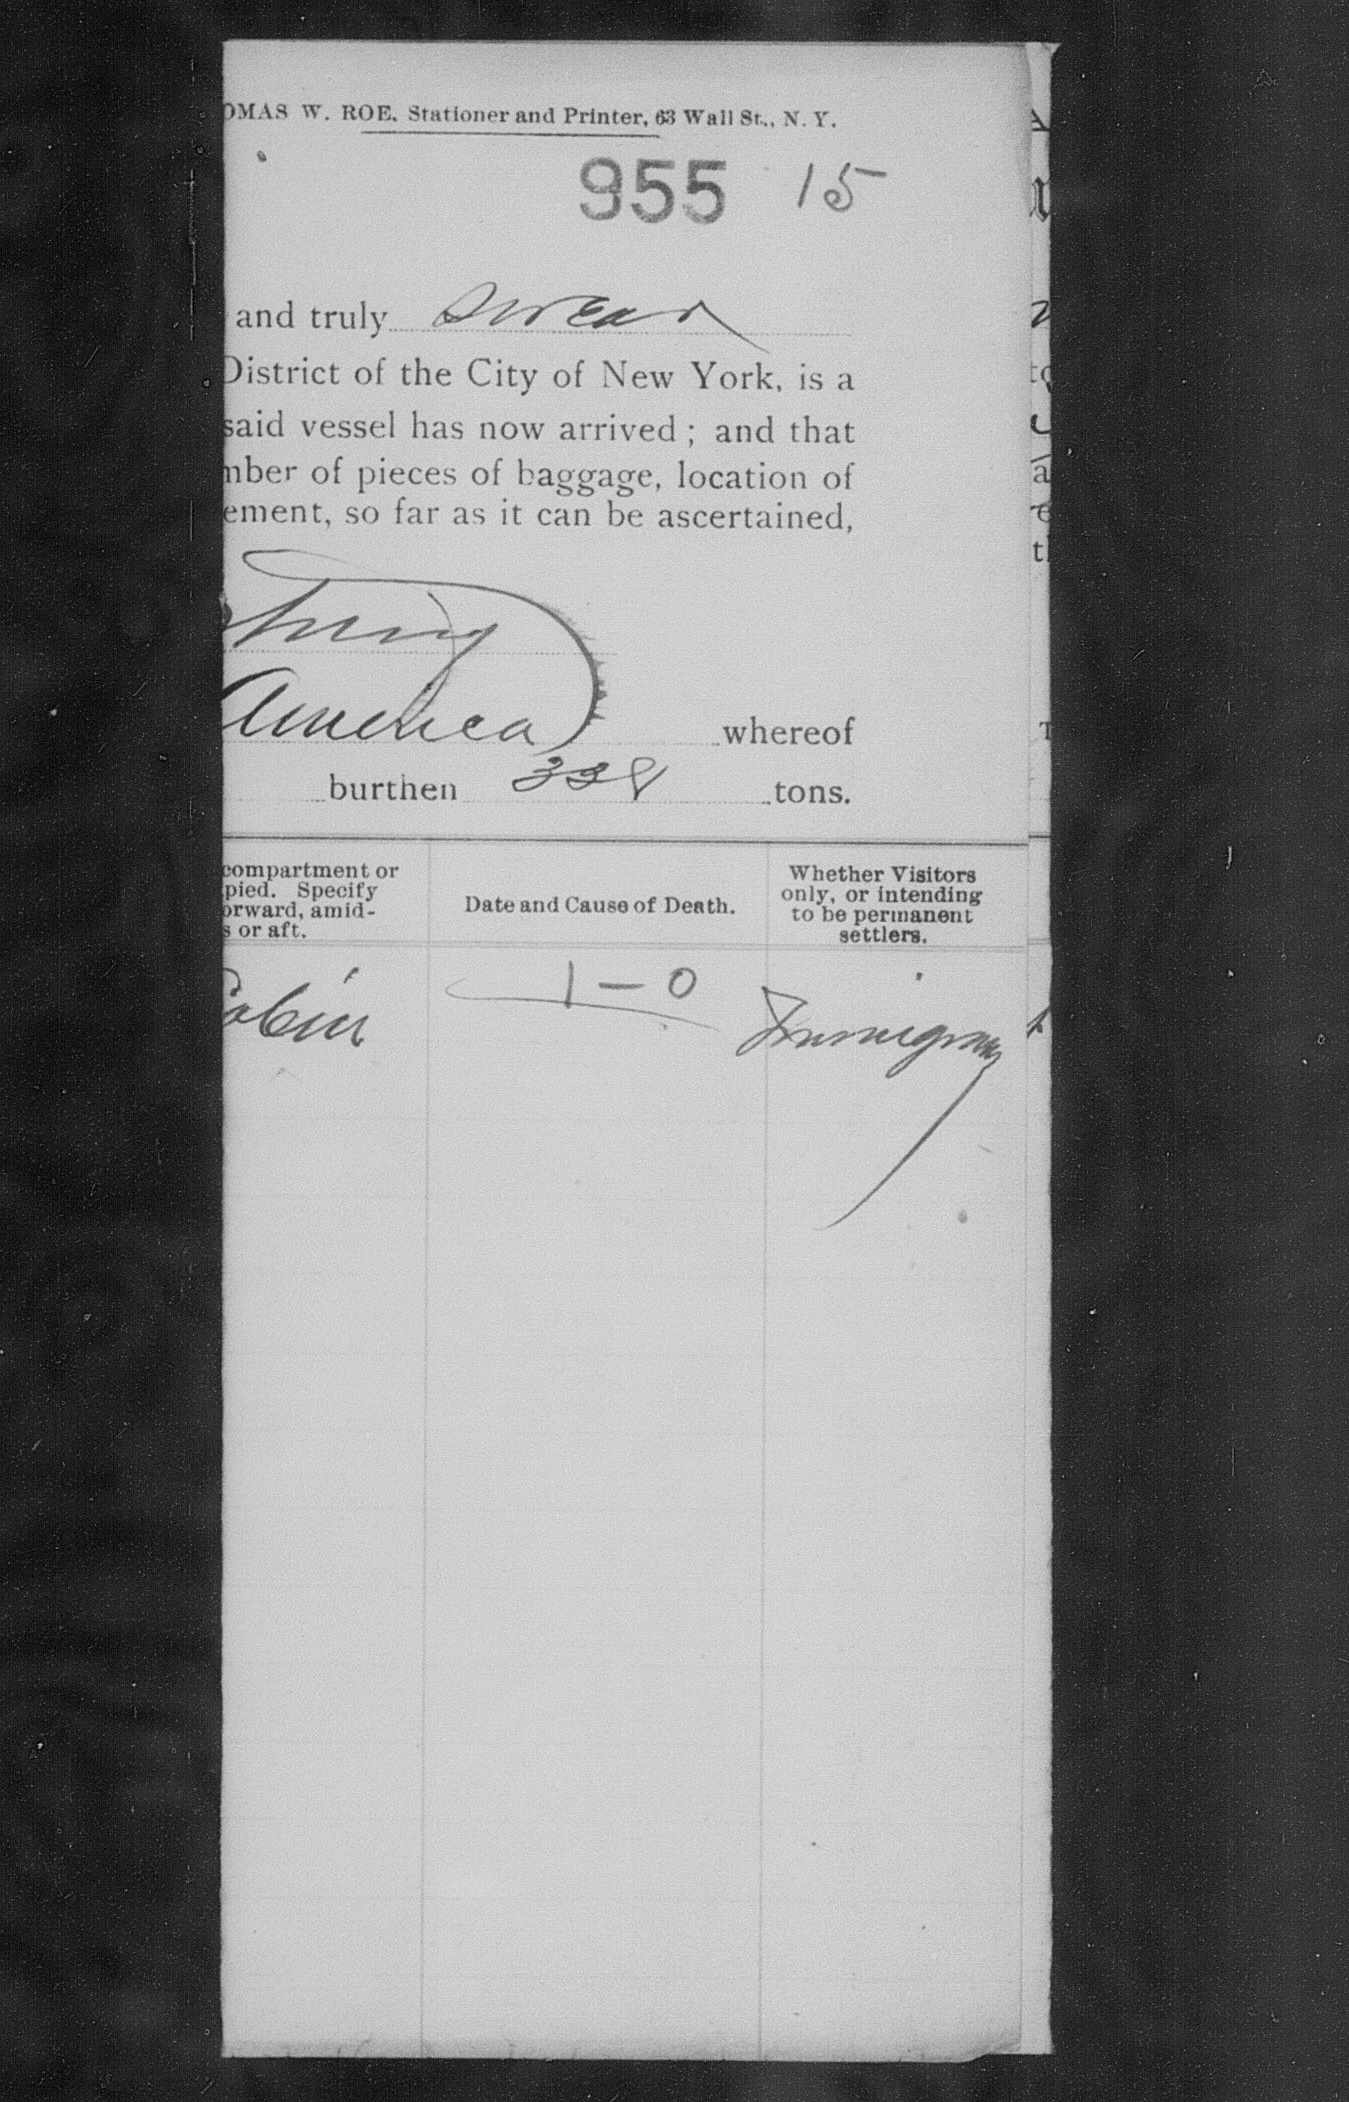 OMAS W. ROE, Stationer and Printer, 63 Wall St., N. Y.
955 15
and truly swear
District of the City of New York, is a
said vessel has now arrived; and that
mber of pieces of baggage, location of
ement, so far as it can be ascertained,
America whereof
burthen 338 tons.
compartment or
pied. Specify
orward, amid-
s or aft.
Date and Cause of Death.
Whether Visitors
only, or intending
to be permanent
settlers.
Cabin 1-0